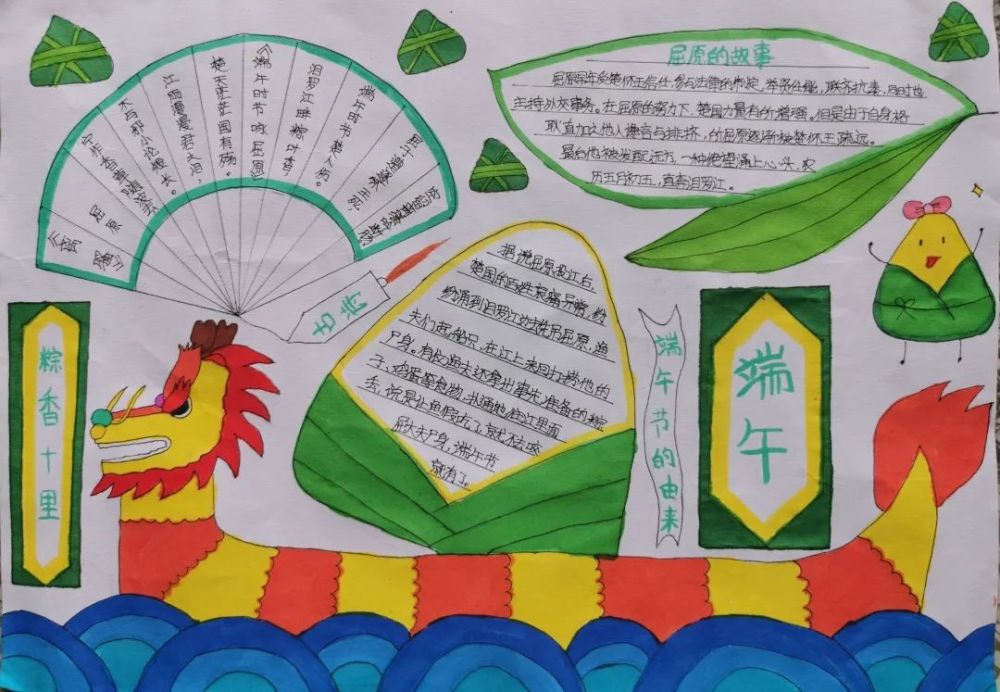 《离骚》
屈原
宁作香草随波去
不与邪小论短长。
江雨漫漫君火泪,
楚天茫茫国有殇。
《端午时节咏屈原》
汨罗江畔粽叶香,
端午时节楚人伤。
古诗
屈原的故事
屈原早年受楚怀王信任,参与法律的制定,举贤任能,联齐抗秦,同时也
主持外交事务。在屈原的努力下,楚国力量有所增强。但是由于自身格
耿直加之他人谗言与排挤,的屈原逐渐被楚怀王疏远。
最后他被发配远方,一种绝望涌上心头,农
历五月初五,直奔汨罗江。
据说屈原投江后,
楚国的百姓哀痛异常,纷
纷涌到汨罗江边凭吊屈原,渔
夫们起船只,在江上来回打捞他的
尸身。有位渔夫还拿出事先准备的粽
子、鸡蛋等食物,扑通地往江里面
丢,说是让鱼虾吃了,就不去咬
屈大夫尸身,端午节
就有了。
粽香十里
端午节的由来
端午